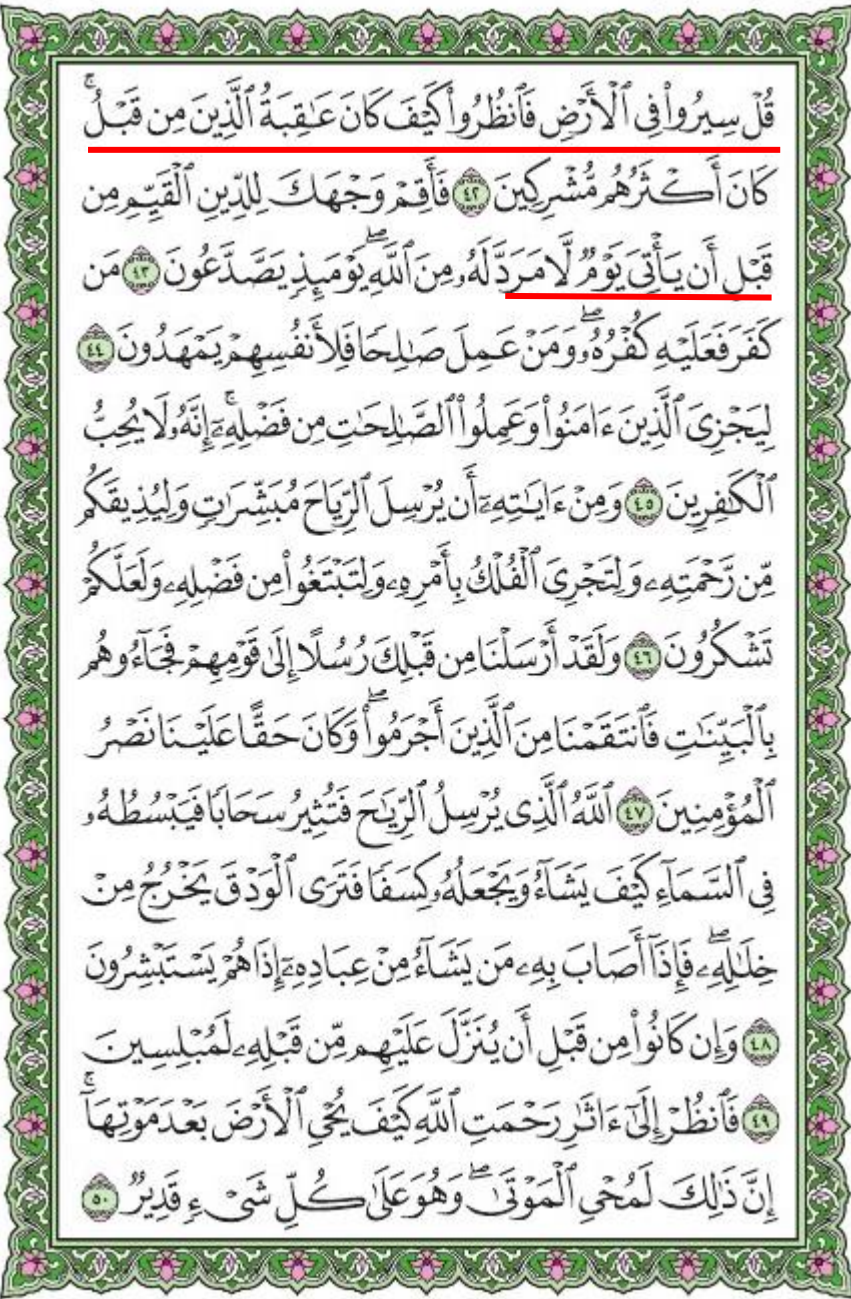 قُلْ سِيرُواْ فِي ٱلْأَرْضِ فَٱنظُرُواْ كَيْفَ كَانَ عَٰقِبَةُ ٱلَّذِينَ مِن قَبْلُۚ
كَانَ أَكْثَرُهُم مُّشْرِكِينَ ٤٢ فَأَقِمْ وَجْهَكَ لِلدِّينِ ٱلْقَيِّمِ مِن
قَبْلِ أَن يَأْتِيَ يَوْمٌ لَّا مَرَدَّ لَهُۥ مِنَ ٱللَّهِۖ يَوْمَئِذٍ يَصَّدَّعُونَ ٤٣ مَن
كَفَرَ فَعَلَيْهِ كُفْرُهُۥۖ وَمَنْ عَمِلَ صَٰلِحًا فَلِأَنفُسِهِمْ يَمْهَدُونَ ٤٤
لِيَجْزِيَ ٱلَّذِينَ ءَامَنُواْ وَعَمِلُواْ ٱلصَّٰلِحَٰتِ مِن فَضْلِهِۦٓۚ إِنَّهُۥ لَا يُحِبُّ
ٱلْكَٰفِرِينَ ٤٥ وَمِنْ ءَايَٰتِهِۦٓ أَن يُرْسِلَ ٱلرِّيَاحَ مُبَشِّرَٰتٍ وَلِيُذِيقَكُم
مِّن رَّحْمَتِهِۦ وَلِتَجْرِيَ ٱلْفُلْكُ بِأَمْرِهِۦ وَلِتَبْتَغُواْ مِن فَضْلِهِۦ وَلَعَلَّكُمْ
تَشْكُرُونَ ٤٦ وَلَقَدْ أَرْسَلْنَا مِن قَبْلِكَ رُسُلًا إِلَىٰ قَوْمِهِمْ فَجَآءُوهُم
بِٱلْبَيِّنَٰتِ فَٱنتَقَمْنَا مِنَ ٱلَّذِينَ أَجْرَمُواْۖ وَكَانَ حَقًّا عَلَيْنَا نَصْرُ
ٱلْمُؤْمِنِينَ ٤٧ ٱللَّهُ ٱلَّذِي يُرْسِلُ ٱلرِّيَٰحَ فَتُثِيرُ سَحَابًا فَيَبْسُطُهُۥ
فِي ٱلسَّمَآءِ كَيْفَ يَشَآءُ وَيَجْعَلُهُۥ كِسَفًا فَتَرَى ٱلْوَدْقَ يَخْرُجُ مِنْ
خِلَٰلِهِۦۖ فَإِذَآ أَصَابَ بِهِۦ مَن يَشَآءُ مِنْ عِبَادِهِۦٓ إِذَا هُمْ يَسْتَبْشِرُونَ
٤٨ وَإِن كَانُواْ مِن قَبْلِ أَن يُنَزَّلَ عَلَيْهِم مِّن قَبْلِهِۦ لَمُبْلِسِينَ
٤٩ فَٱنظُرْ إِلَىٰٓ ءَاثَٰرِ رَحْمَتِ ٱللَّهِ كَيْفَ يُحْيِ ٱلْأَرْضَ بَعْدَ مَوْتِهَآۚ
إِنَّ ذَٰلِكَ لَمُحْيِ ٱلْمَوْتَىٰۖ وَهُوَ عَلَىٰ كُلِّ شَيْءٍ قَدِيرٌ ٥٠